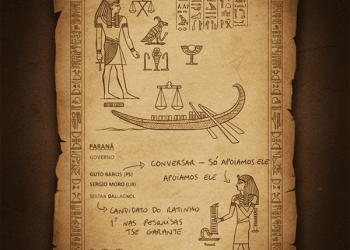 PARANÁ
GOVERNO
CONVERSAR — SÓ APOIAMOS ELE
GUTO BARROS (PS)
APOIAMOS ELE
SERGIO MORO (UB)
DALLAGNOL
CANDIDATO DO RATINHO
1º NAS PESQUISAS
TSE GARANTE